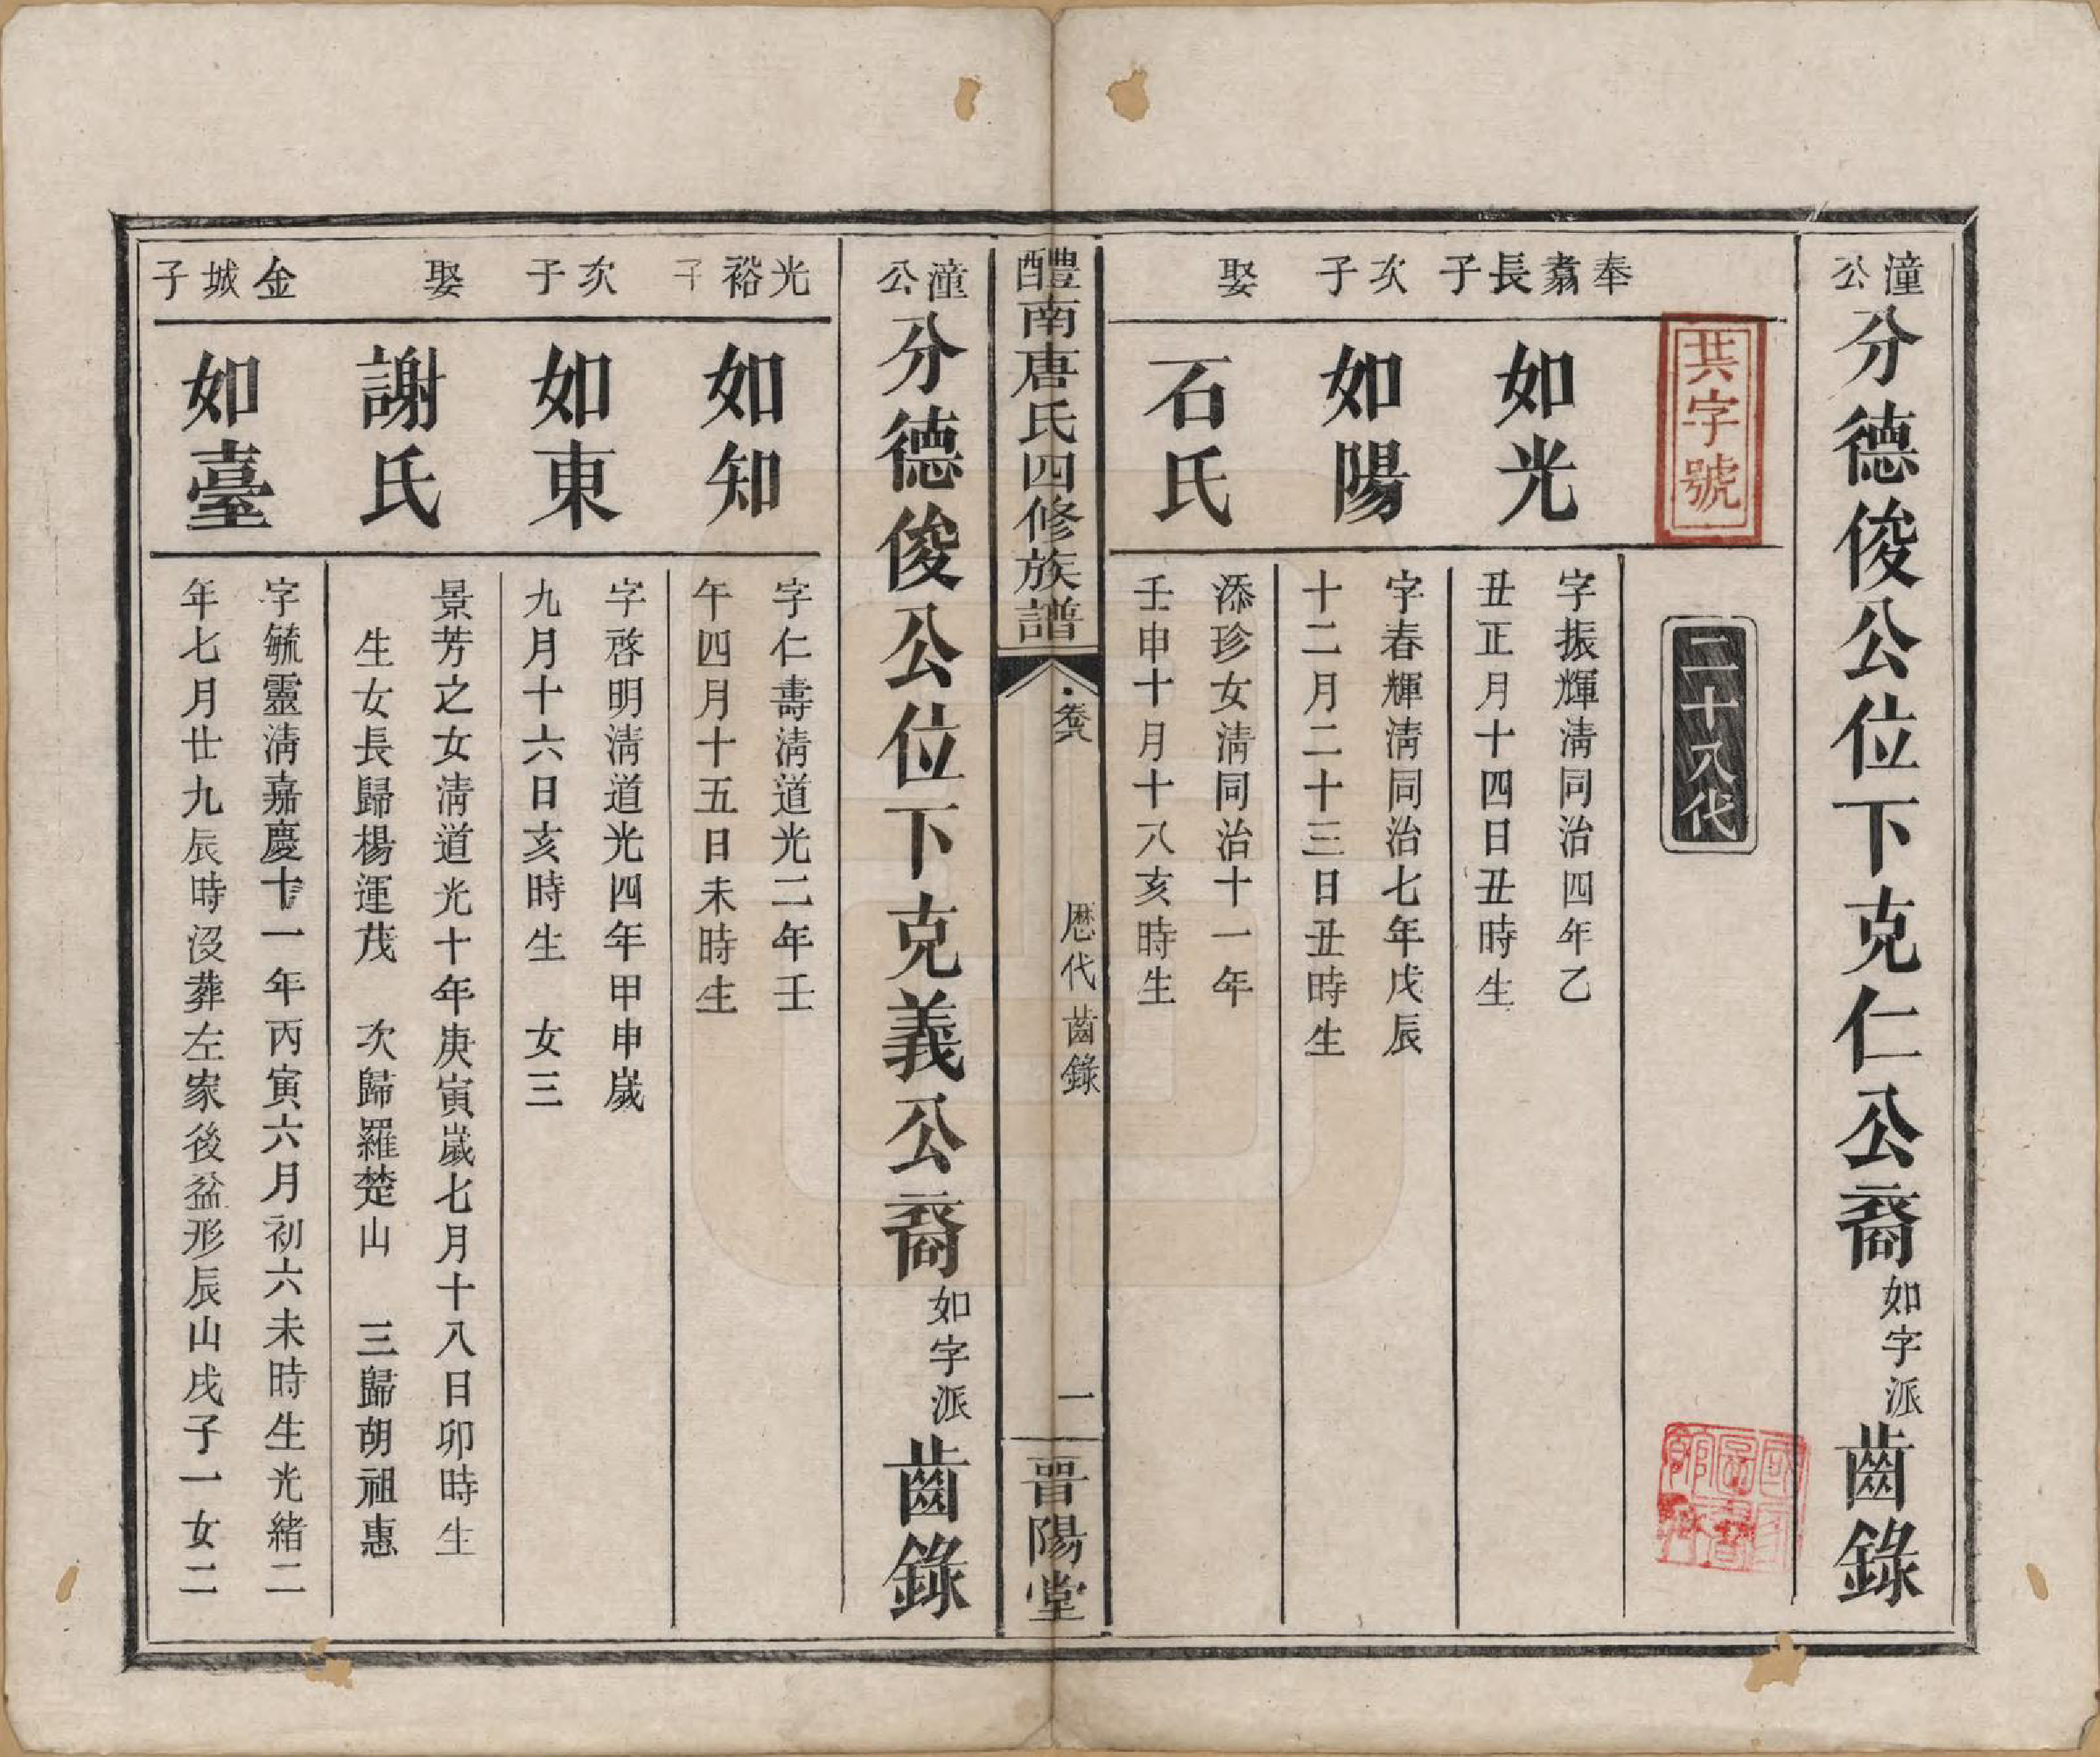 潼公分德俊公位下克仁公裔如字派齒錄
共字號
二十八代
奉翥長子
如光
字振輝清同治四年乙
丑正月十四日丑時生
次子
如陽
字春輝清同治七年戊辰
十二月二十三日丑時生
娶
石氏
添珍女清同治十一年
壬申十月十八亥時生
醴南唐氏四修族譜
卷八
歷代齒錄
一
晉陽堂
潼公分德俊公位下克義公裔如字派齒錄
光裕子
如知
字仁壽清道光二年壬
午四月十五日未時生
次子
如東
字啓明清道光四年甲申歲
九月十六日亥時生 女三
娶
謝氏
景芳之女清道光十年庚寅歲七月十八日卯時生
生女長歸楊運茂 次歸羅楚山 三歸胡祖惠
金城子
如臺
字毓靈清嘉慶十一年丙寅六月初六未時生光緒二
年七月廿九辰時沒葬左家後盆形辰山戌子一女二